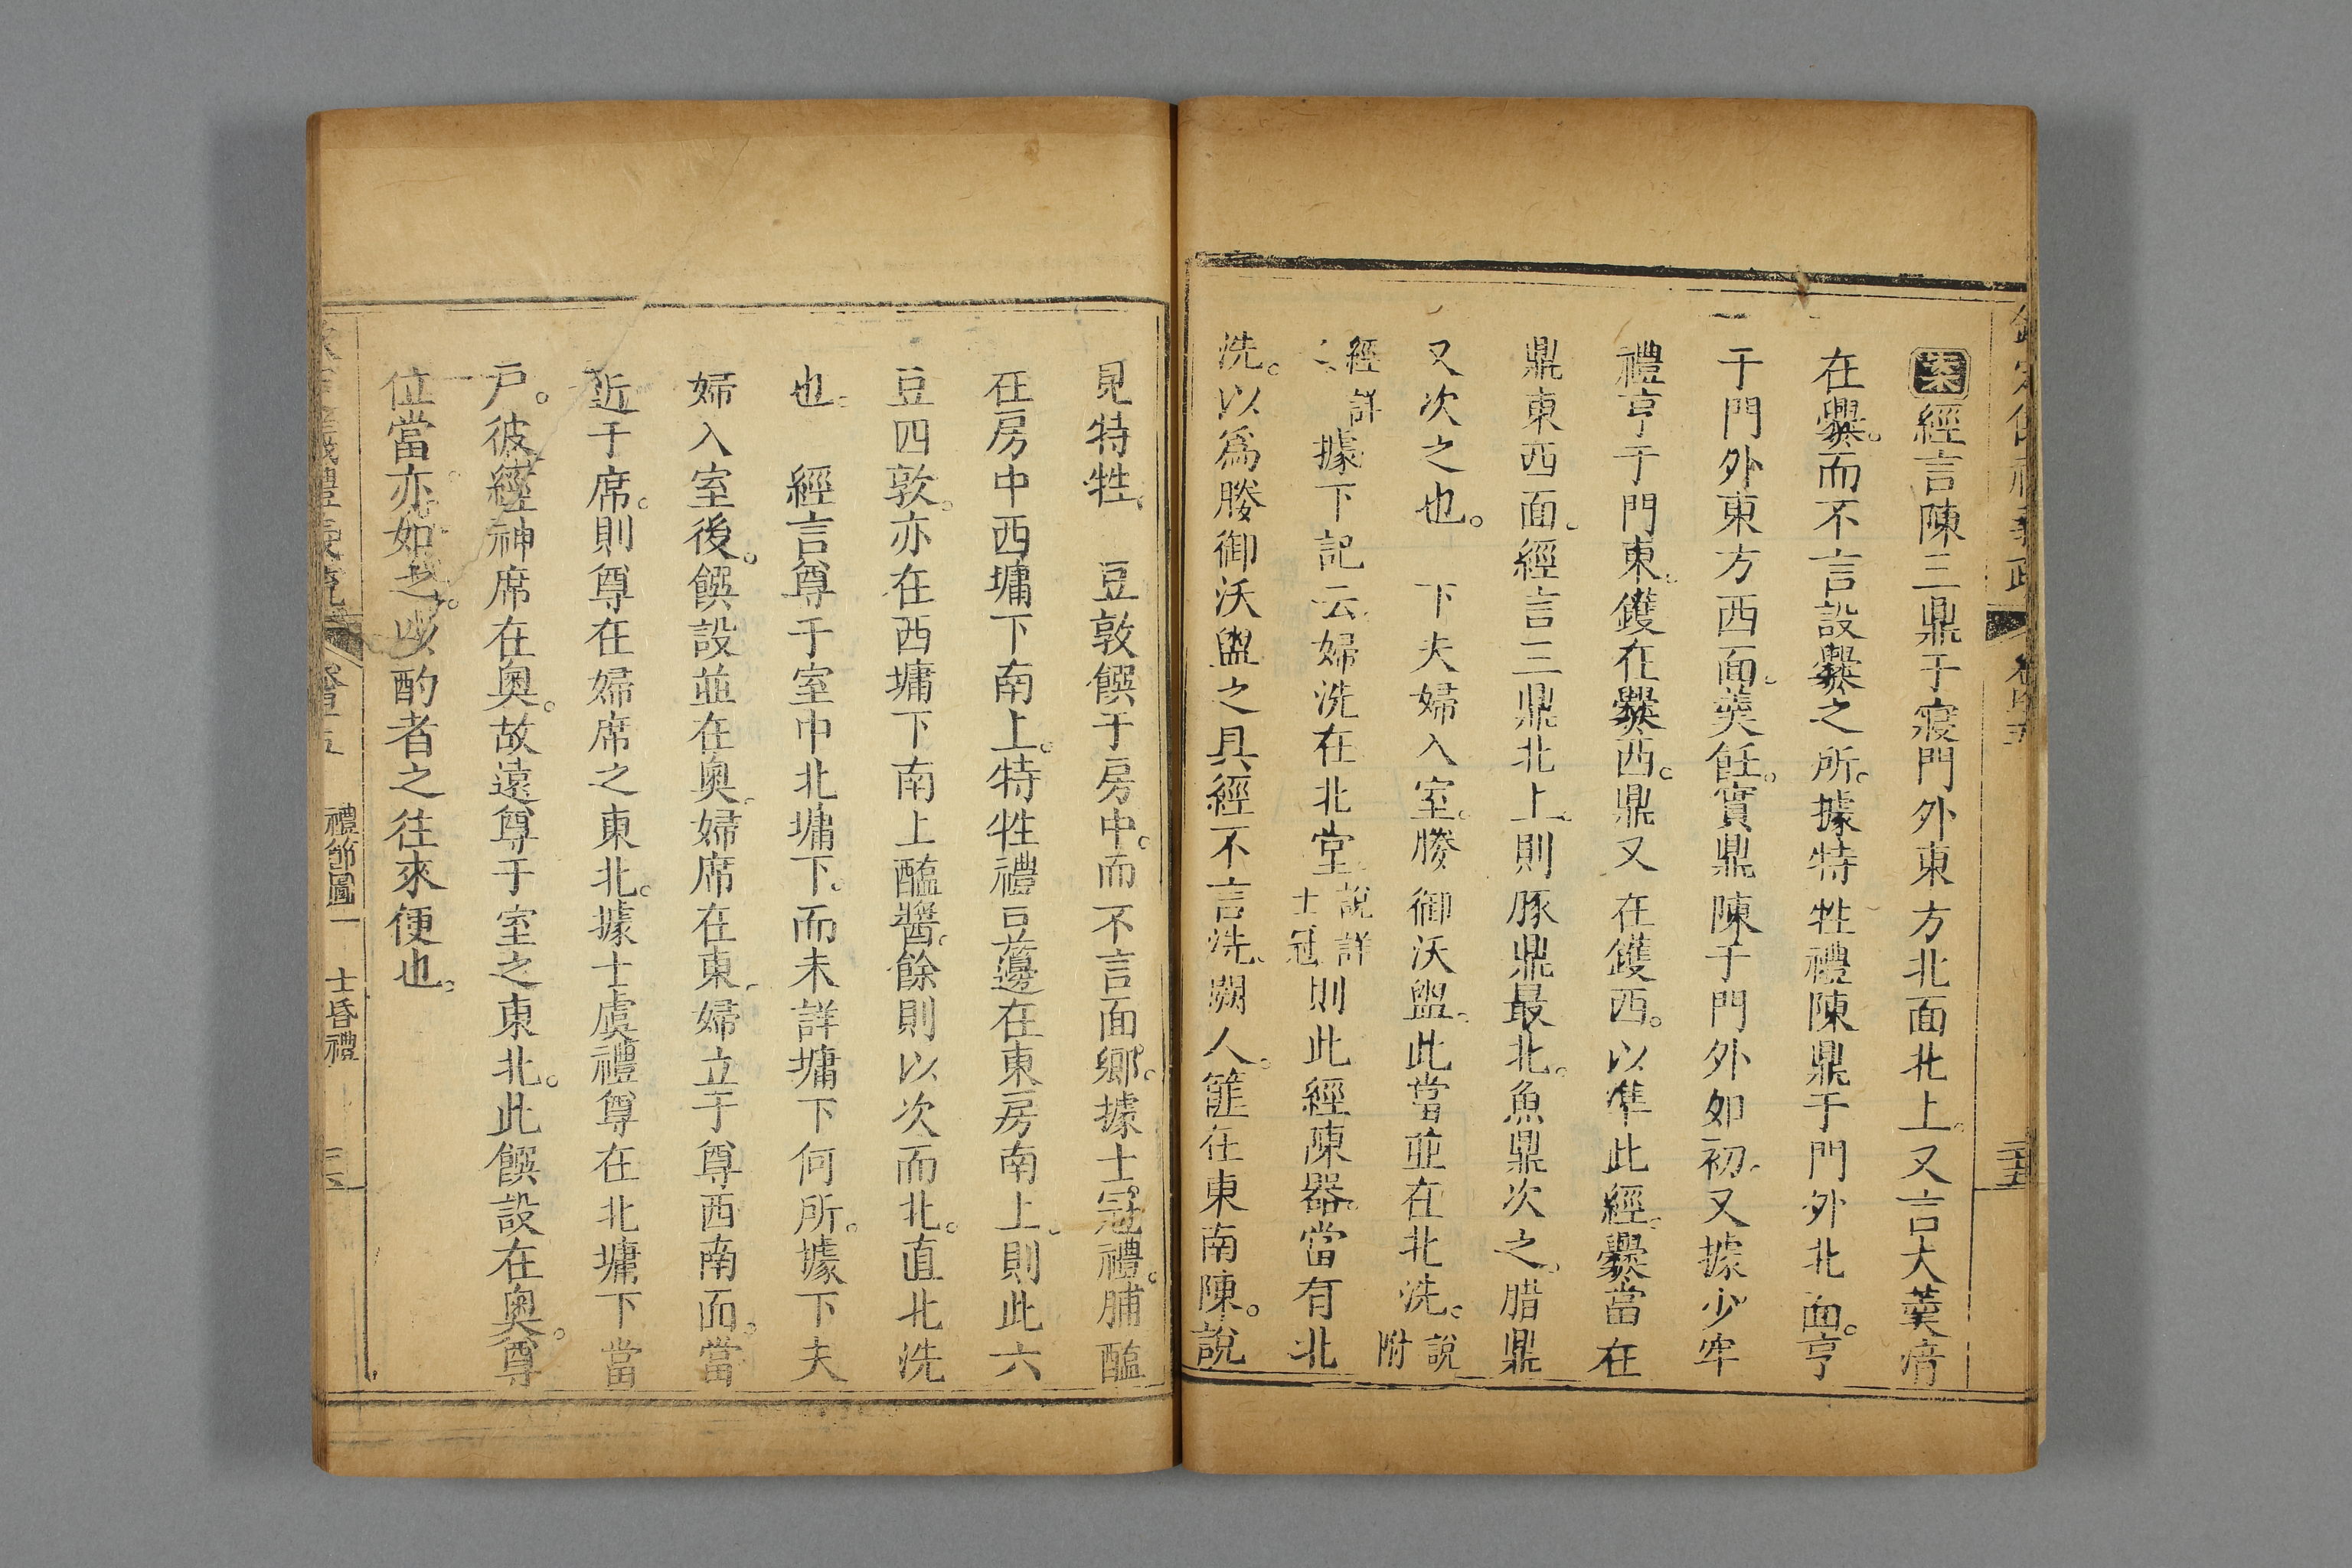 案經言陳三鼎于寢門外東方北面北上。又言大羹湆
在爨。而不言設爨之所。據特牲禮陳鼎于門外北面。亨
于門外東方西面。羹飪。實鼎陳于門外如初。又據少牢
禮亨于門東。鑊在爨西。鼎又在鑊西。以準此經。爨當在
鼎東西面。經言三鼎北上。則豚鼎最北。魚鼎次之。腊鼎
又次之也。　下夫婦入室。媵御沃盥。此當並在北洗。說附
經詳據下記云婦洗在北堂。說詳士冠則此經陳器。當有北
洗。以為媵御沃盥之具經不言洗。闕人。篚在東南陳。說
見特牲。　豆敦饌于房中。而不言面鄉。據士冠禮。脯醢
在房中西墉下南上。特牲禮豆籩在東房南上。則此六
豆四敦。亦在西墉下南上醯醬。餘則以次而北。直北洗
也。　經言尊于室中北墉下。而未詳墉下何所。據下夫
婦入室後。饌設並在奧。婦席在東。婦立于尊西南面。當
近于席。則尊在婦席之東北。據士虞禮尊在北墉下當
戶。彼經神席在奧。故遠尊于室之東北。此饌設在奧。尊
位當亦如之。以酌者之往來便也。
禮節圖一　士昏禮